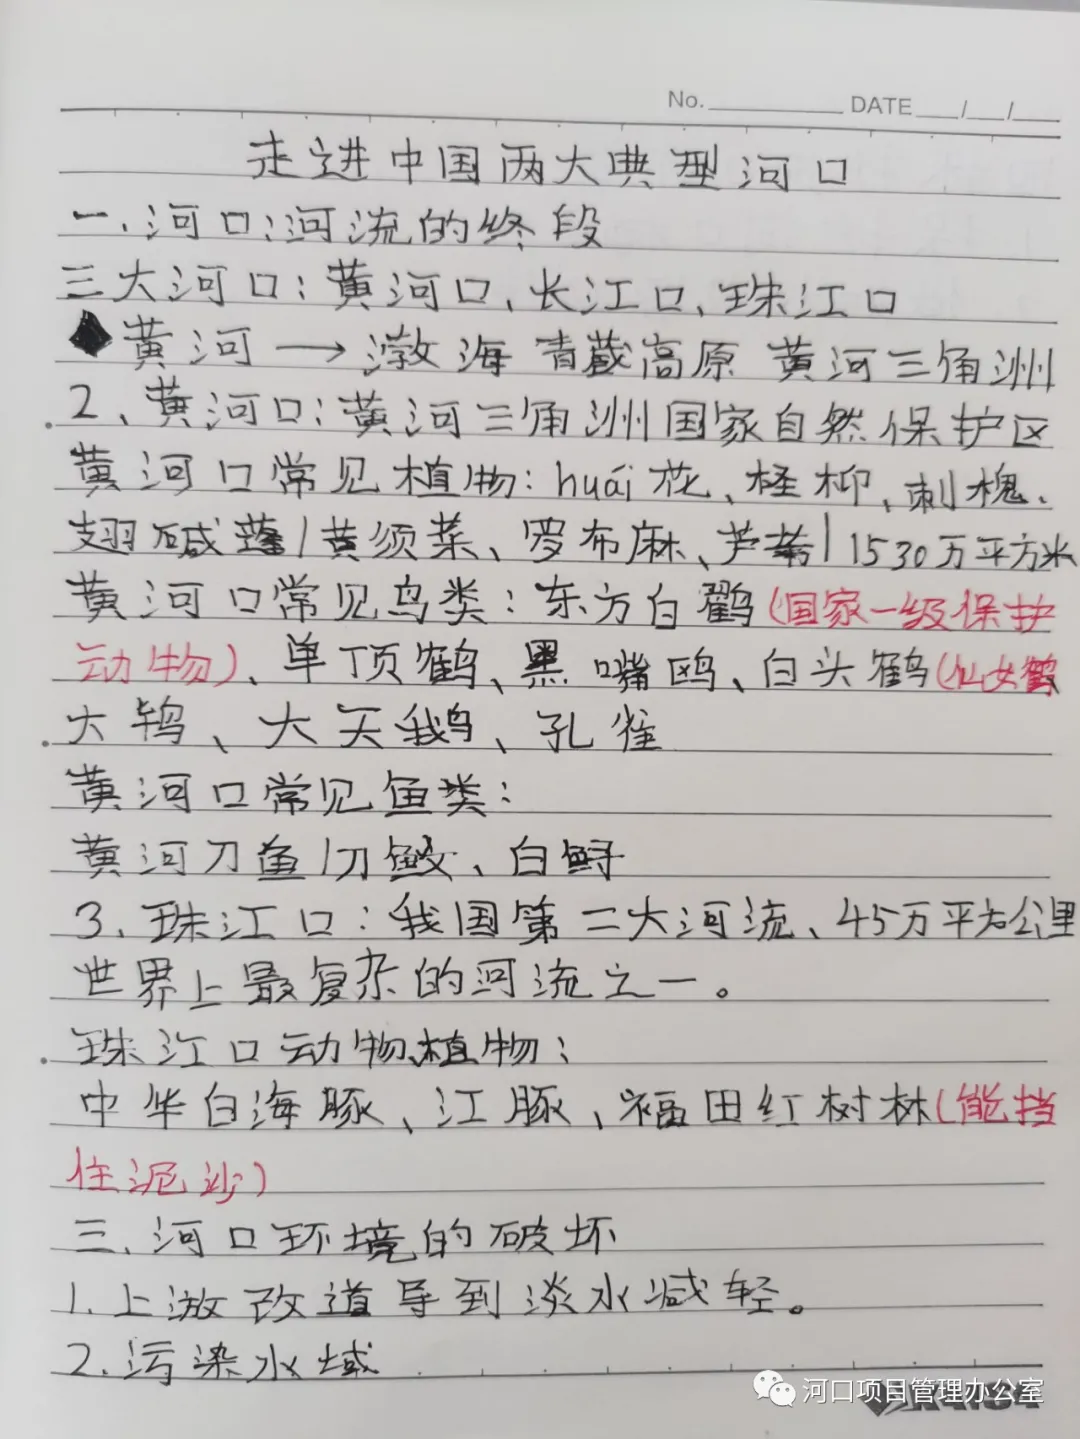 No. DATE / /
走进中国两大典型河口
一、河口:河流的终段
三大河口:黄河口、长江口、珠江口
◆黄河→渤海 青藏高原 黄河三角洲
2、黄河口:黄河三角洲国家自然保护区
黄河口常见植物:huái花、柽柳、刺槐、
翅碱蓬/黄须菜、罗布麻、芦苇/1530万平方米
黄河口常见鸟类:东方白鹳(国家一级保护
动物)、单顶鹤、黑嘴鸥、白头鹤(仙女鹤
大鸨、大天鹅、孔雀
黄河口常见鱼类:
黄河刀鱼/刀鲚、白鲟
3、珠江口:我国第二大河流、45万平方公里
世界上最复杂的河流之一。
珠江口动物、植物:
中华白海豚、江豚、福田红树林(能挡
住泥沙)
三、河口环境的破坏
1.上游改道导到淡水减轻。
2.污染水域
河口项目管理办公室